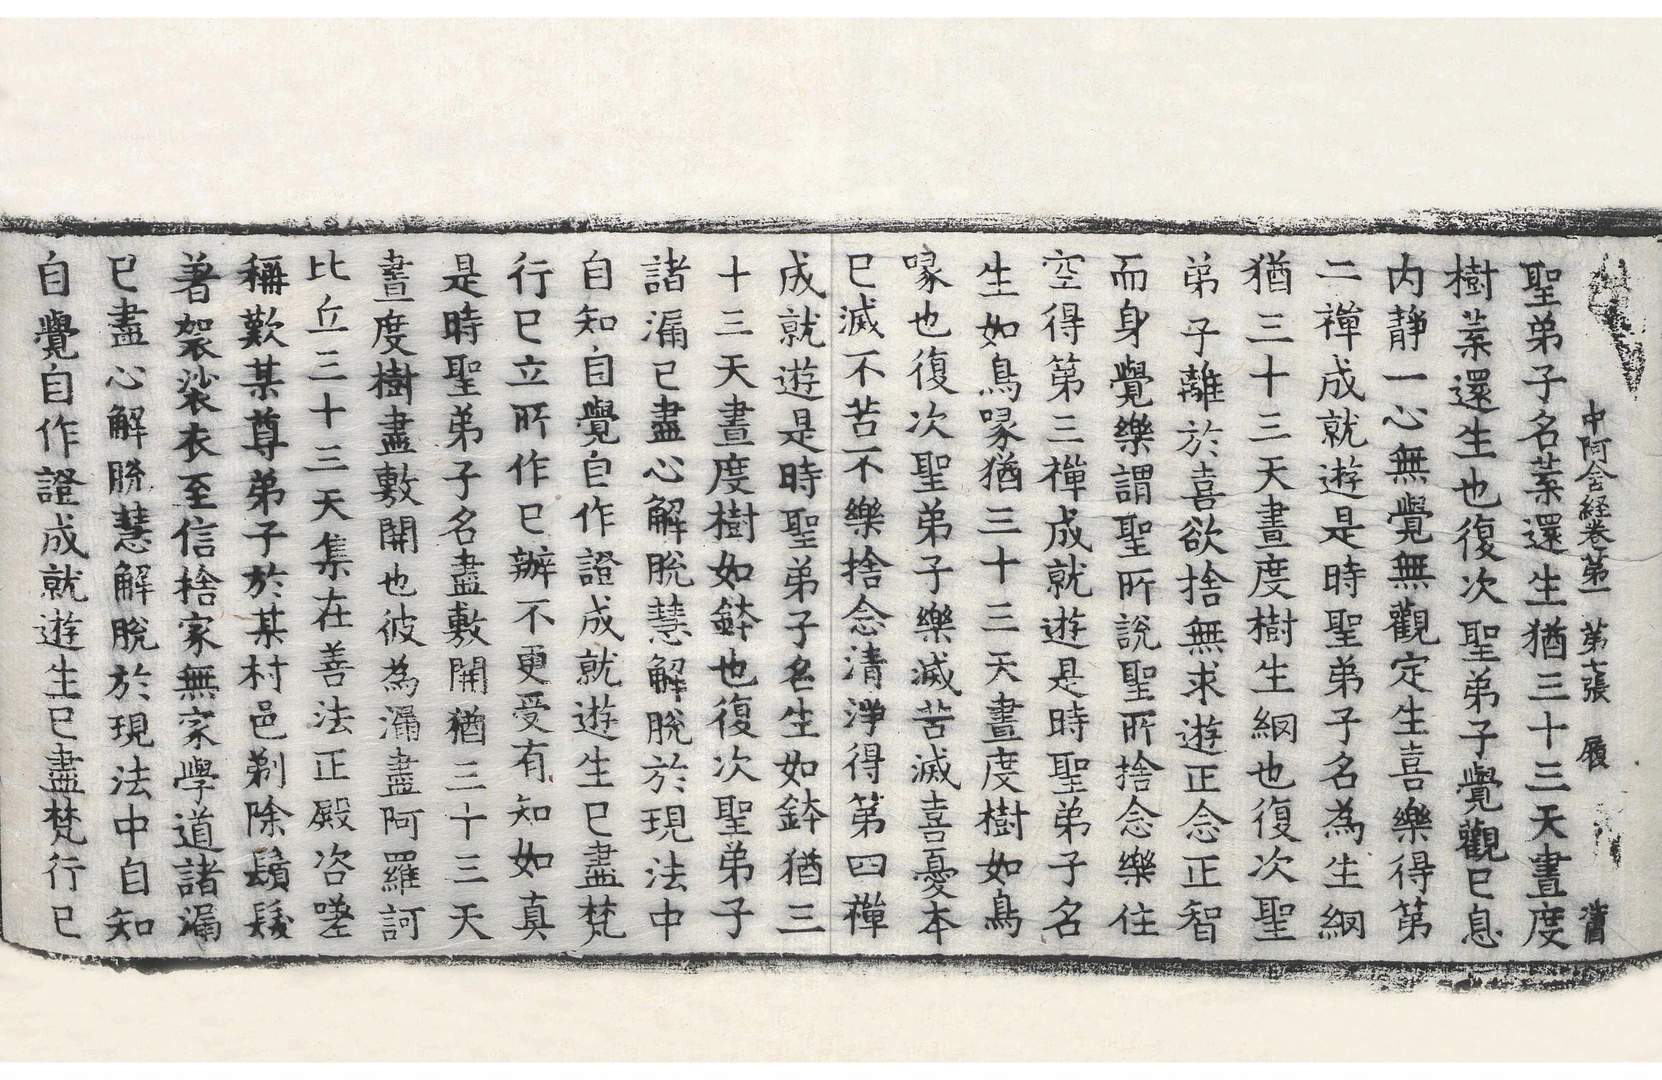 中阿含経卷第一 第七張 履
聖弟子名葉還生猶三十三天晝度
樹葉還生也復次聖弟子覺觀已息
內靜一心無覺無觀定生喜樂得第
二禪成就遊是時聖弟子名為生網
猶三十三天晝度樹生網也復次聖
弟子離於喜欲捨無求遊正念正智
而身覺樂謂聖所說聖所捨念樂住
空得第三禪成就遊是時聖弟子名
生如鳥喙猶三十三天晝度樹如鳥
喙也復次聖弟子樂滅苦滅喜憂本
已滅不苦不樂捨念清淨得第四禪
成就遊是時聖弟子名生如鉢猶三
十三天晝度樹如鉢也復次聖弟子
諸漏已盡心解脫慧解脫於現法中
自知自覺自作證成就遊生已盡梵
行已立所作已辦不更受有知如真
是時聖弟子名盡敷開猶三十三天
晝度樹盡敷開也彼為漏盡阿羅訶
比丘三十三天集在善法正殿咨嗟
稱歎某尊弟子於某村邑剃除鬚髮
著袈裟衣至信捨家無家學道諸漏
已盡心解脫慧解脫於現法中自知
自覺自作證成就遊生已盡梵行已